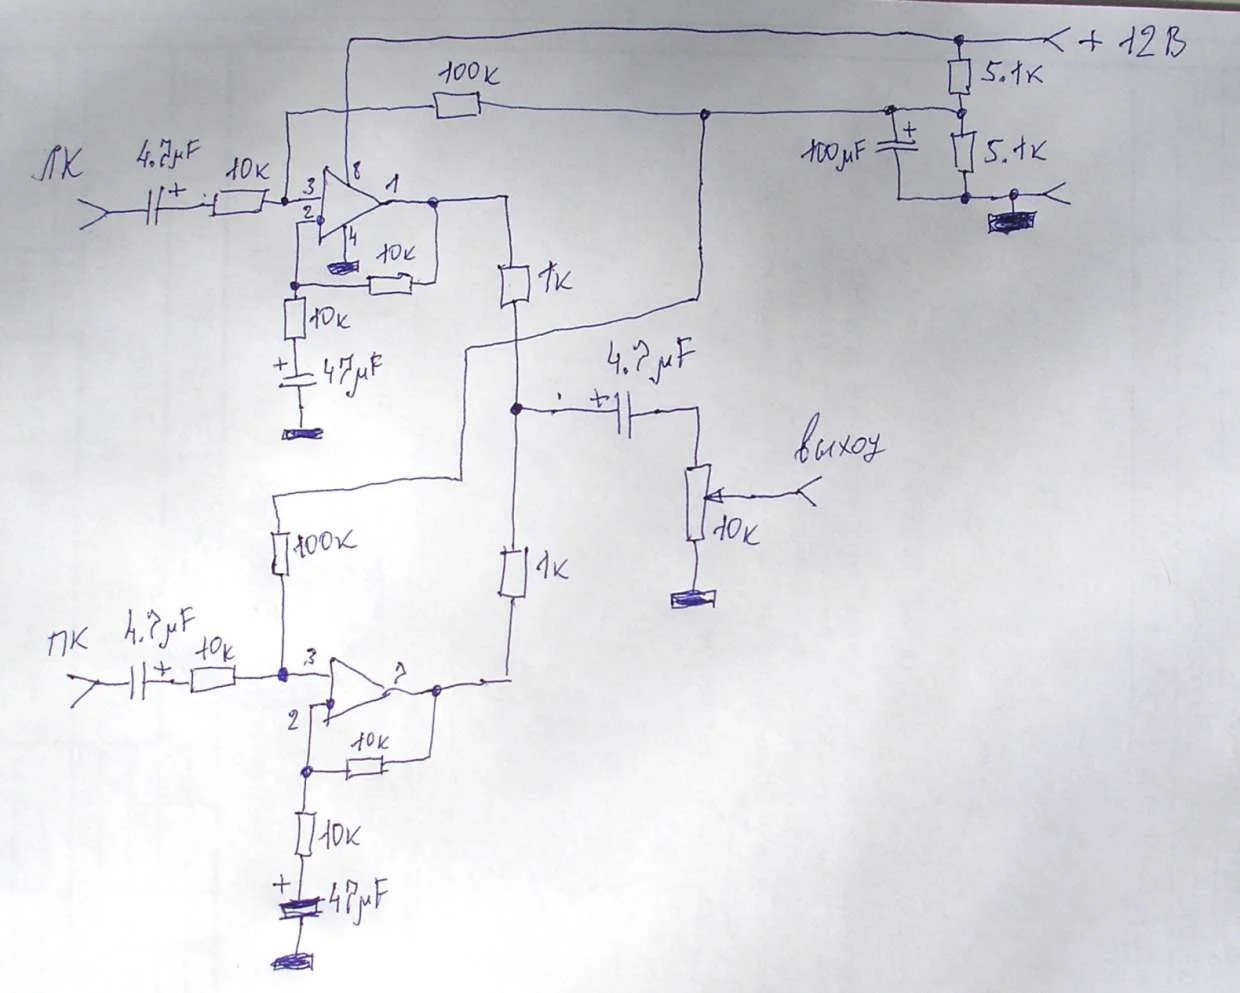 + 12В
5.1к
100к
100µF
+
5.1к
ЛК
4.7µF
+
10к
3
8
1
2
4
10к
1к
10к
+
47µF
4.7µF
+
выход
10к
100к
1к
ПК
4.7µF
+
10к
3
7
2
10к
10к
+
47µF